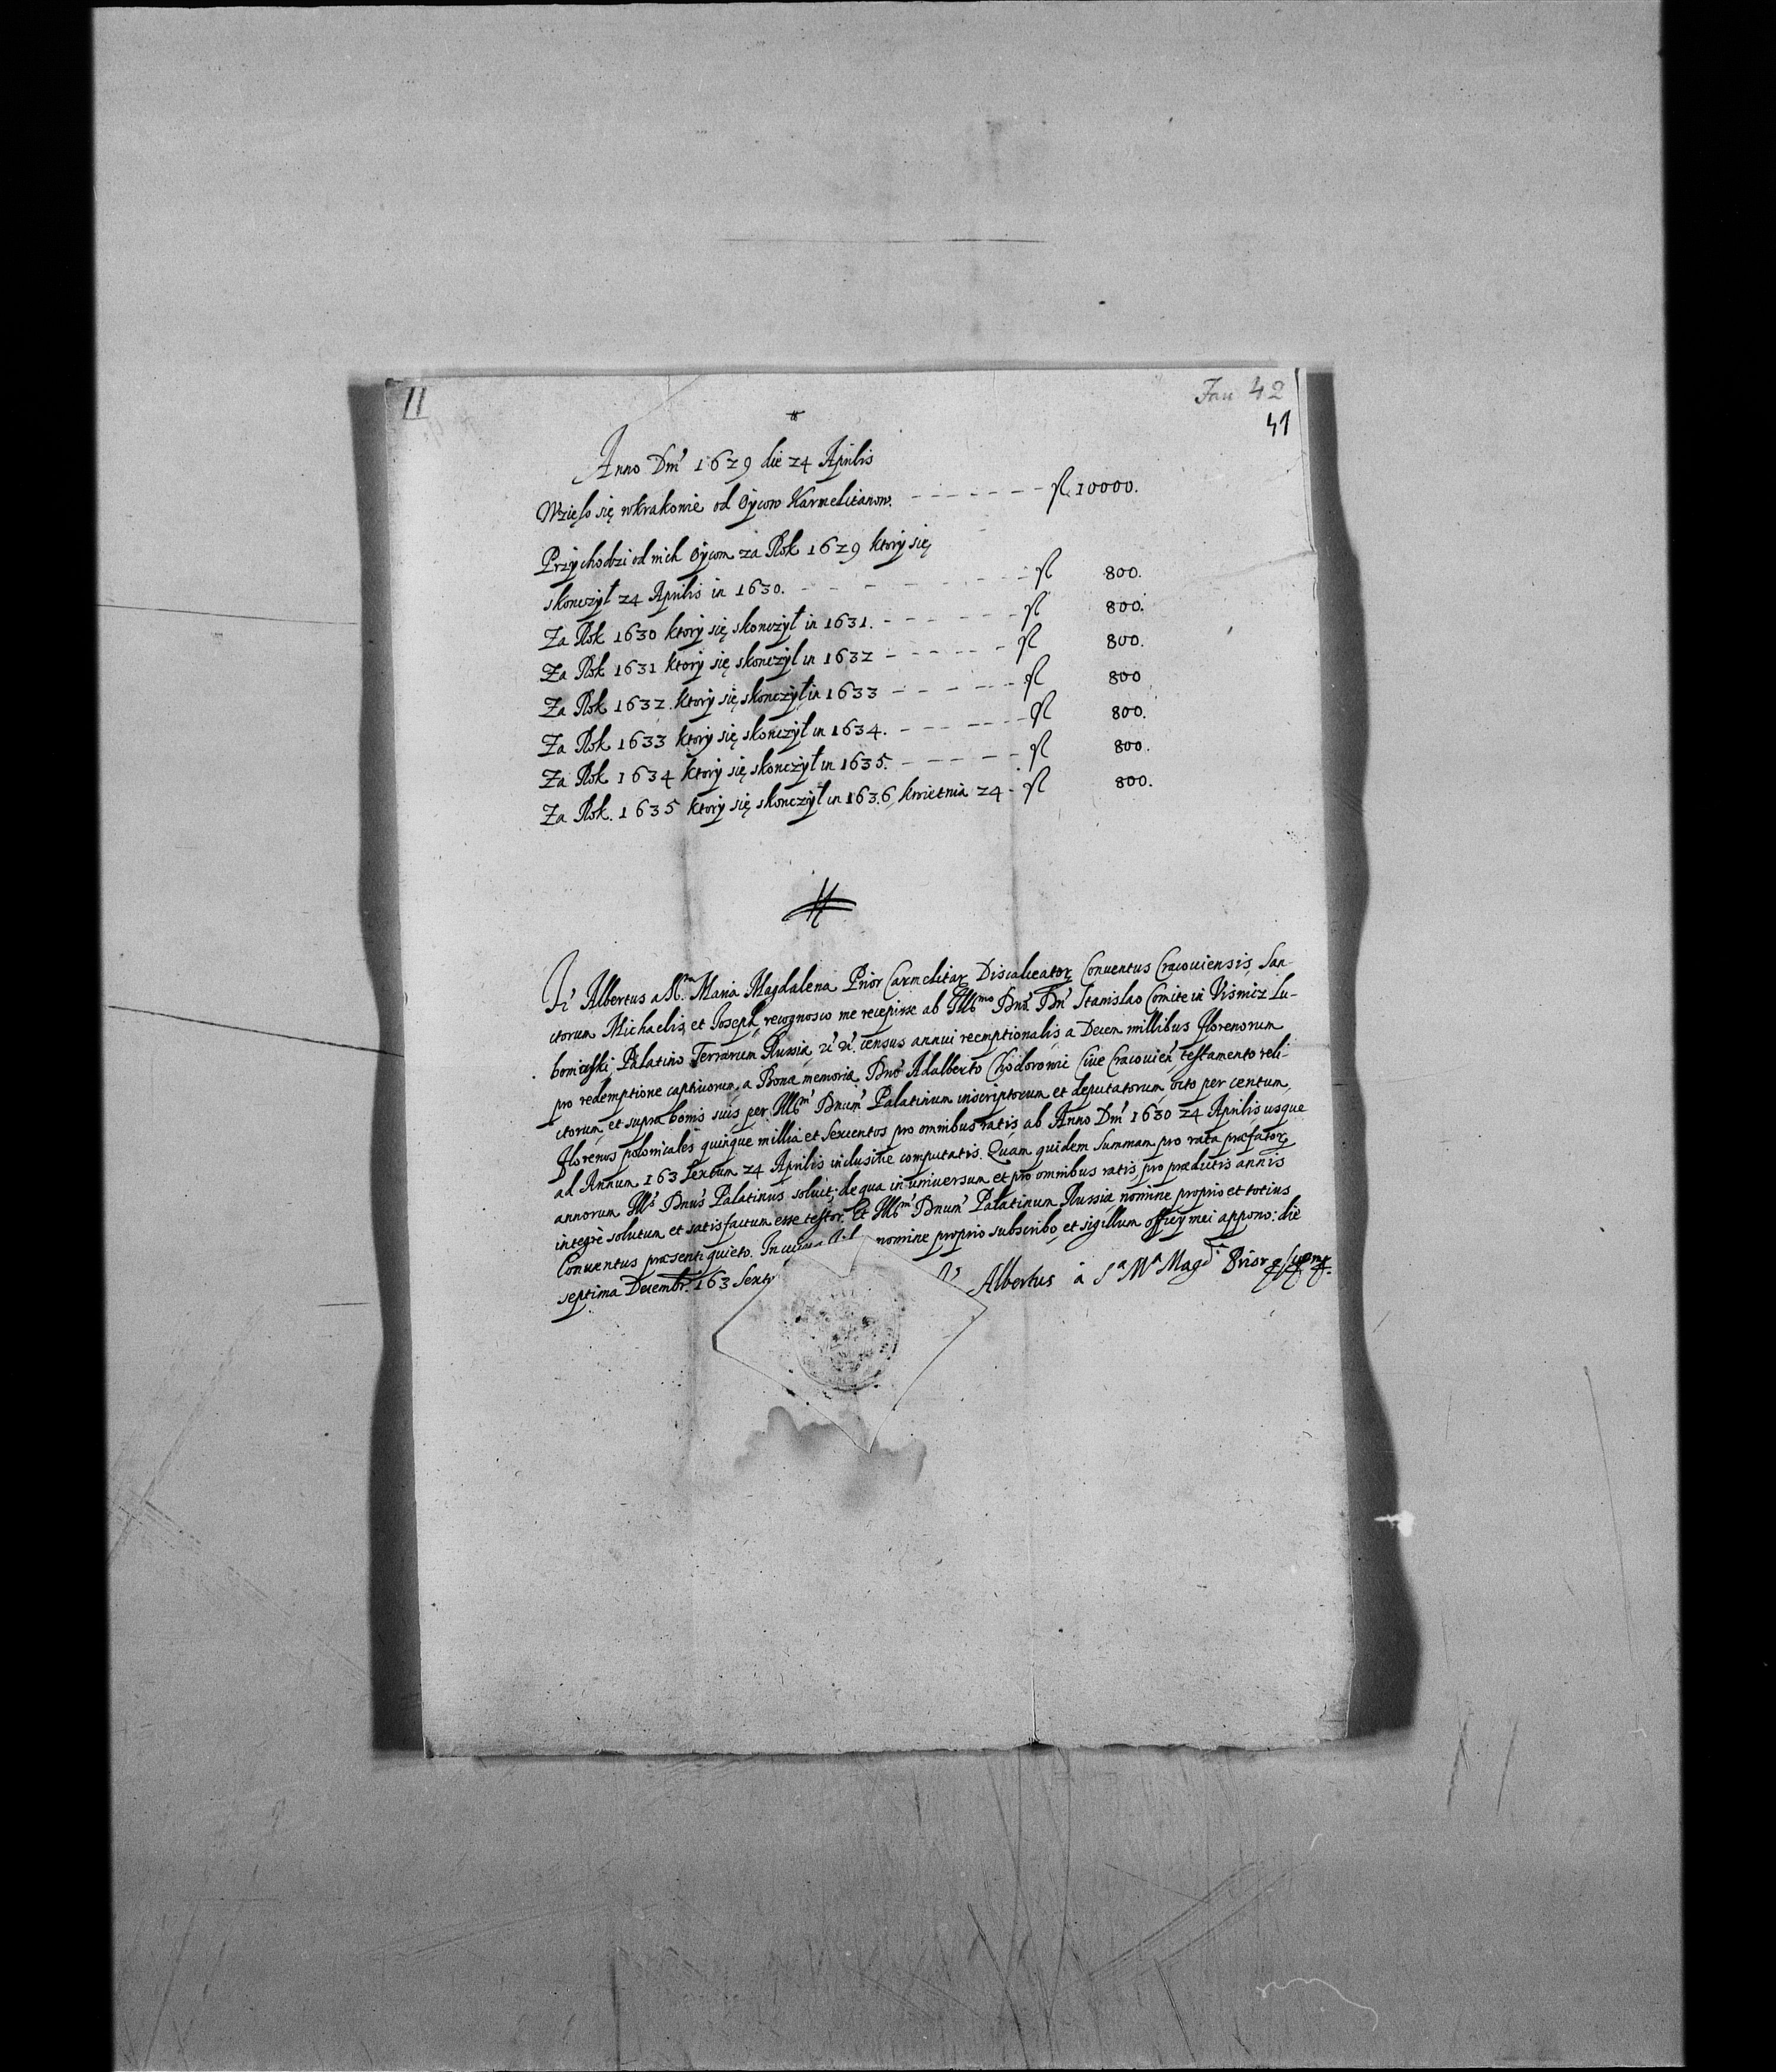 II
Jan 42
41
Anno Dni 1629 die 24 Aprilis
Wzięło się w Krakowie od Oycow Karmelitanow. - - - - - - - fl. 10000.
Przychodzi od nich Oycom za Rok 1629 ktory się
skonczył 24 Aprilis in 1630. - - - - - - - fl 800.
Za Rok 1630 ktory się skonczył in 1631. - - - - - - fl 800.
Za Rok 1631 ktory się skonczył in 1632 - - - - - - fl 800.
Za Rok 1632. ktory się skonczył in 1633 - - - - - - fl 800
Za Rok 1633 ktory się skonczył in 1634. - - - - - - fl 800.
Za Rok 1634 ktory się skonczył in 1635. - - - - - fl 800.
Za Rok. 1635 ktory się skonczył in 1636 kwietnia 24 - fl 800.
Albertus a Maria Magdalena Prior Carmelitar Discalceator Conuentus Cracouiensis, San-
ctorum Michaelis et Joseph, recognosco me recepisse ab Illmo Dno Dn Stanislao Comite in Visnicz Lu-
bomirski Palatino Terrarum Russiæ census annui reemptionalis a Decem millibus florenorum
pro redemptione captiuorum, a Bonæ memoriæ Dno Adalberto Chodorowic Ciue Cracouien testamento reli-
ctorum, et supra bonis suis per Illm Dnum Palatinum inscriptorum et deputatorum, octo per centum,
florenos polonicales quinque millia et Sexcentos pro omnibus ratis ab Anno Dni 1630 24 Aprilis usque
ad Annum 163 Sextum 24 Aprilis inclusiue computatis. Quam quidem Summam pro rata præfator
annorum Ills Dnus Palatinus soluit; de qua in uniuersum et pro omnibus ratis, pro prædictis annis
integrè solutum et satisfactum esse testor. Et Illm Dnum Palatinum Russiæ nomine proprio et totius
Conuentus præsenti quieto. In cuius nomine proprio subscribo, et sigillum officij mei appono: die
septima Decembr. 163 Sext
Albertus à Sa Ma Magd Prior